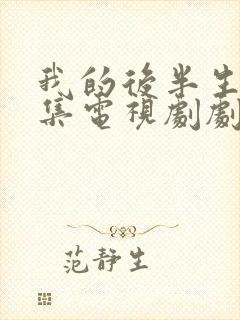 我的後半生
集電視劇劇
范靜生